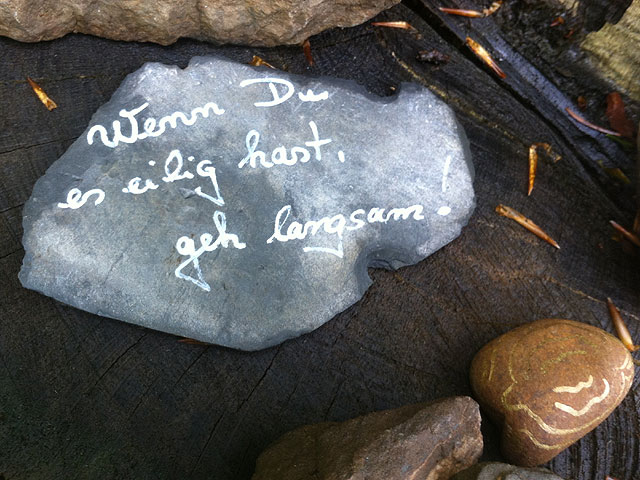 Wenn Du
es eilig hast,
geh langsam!